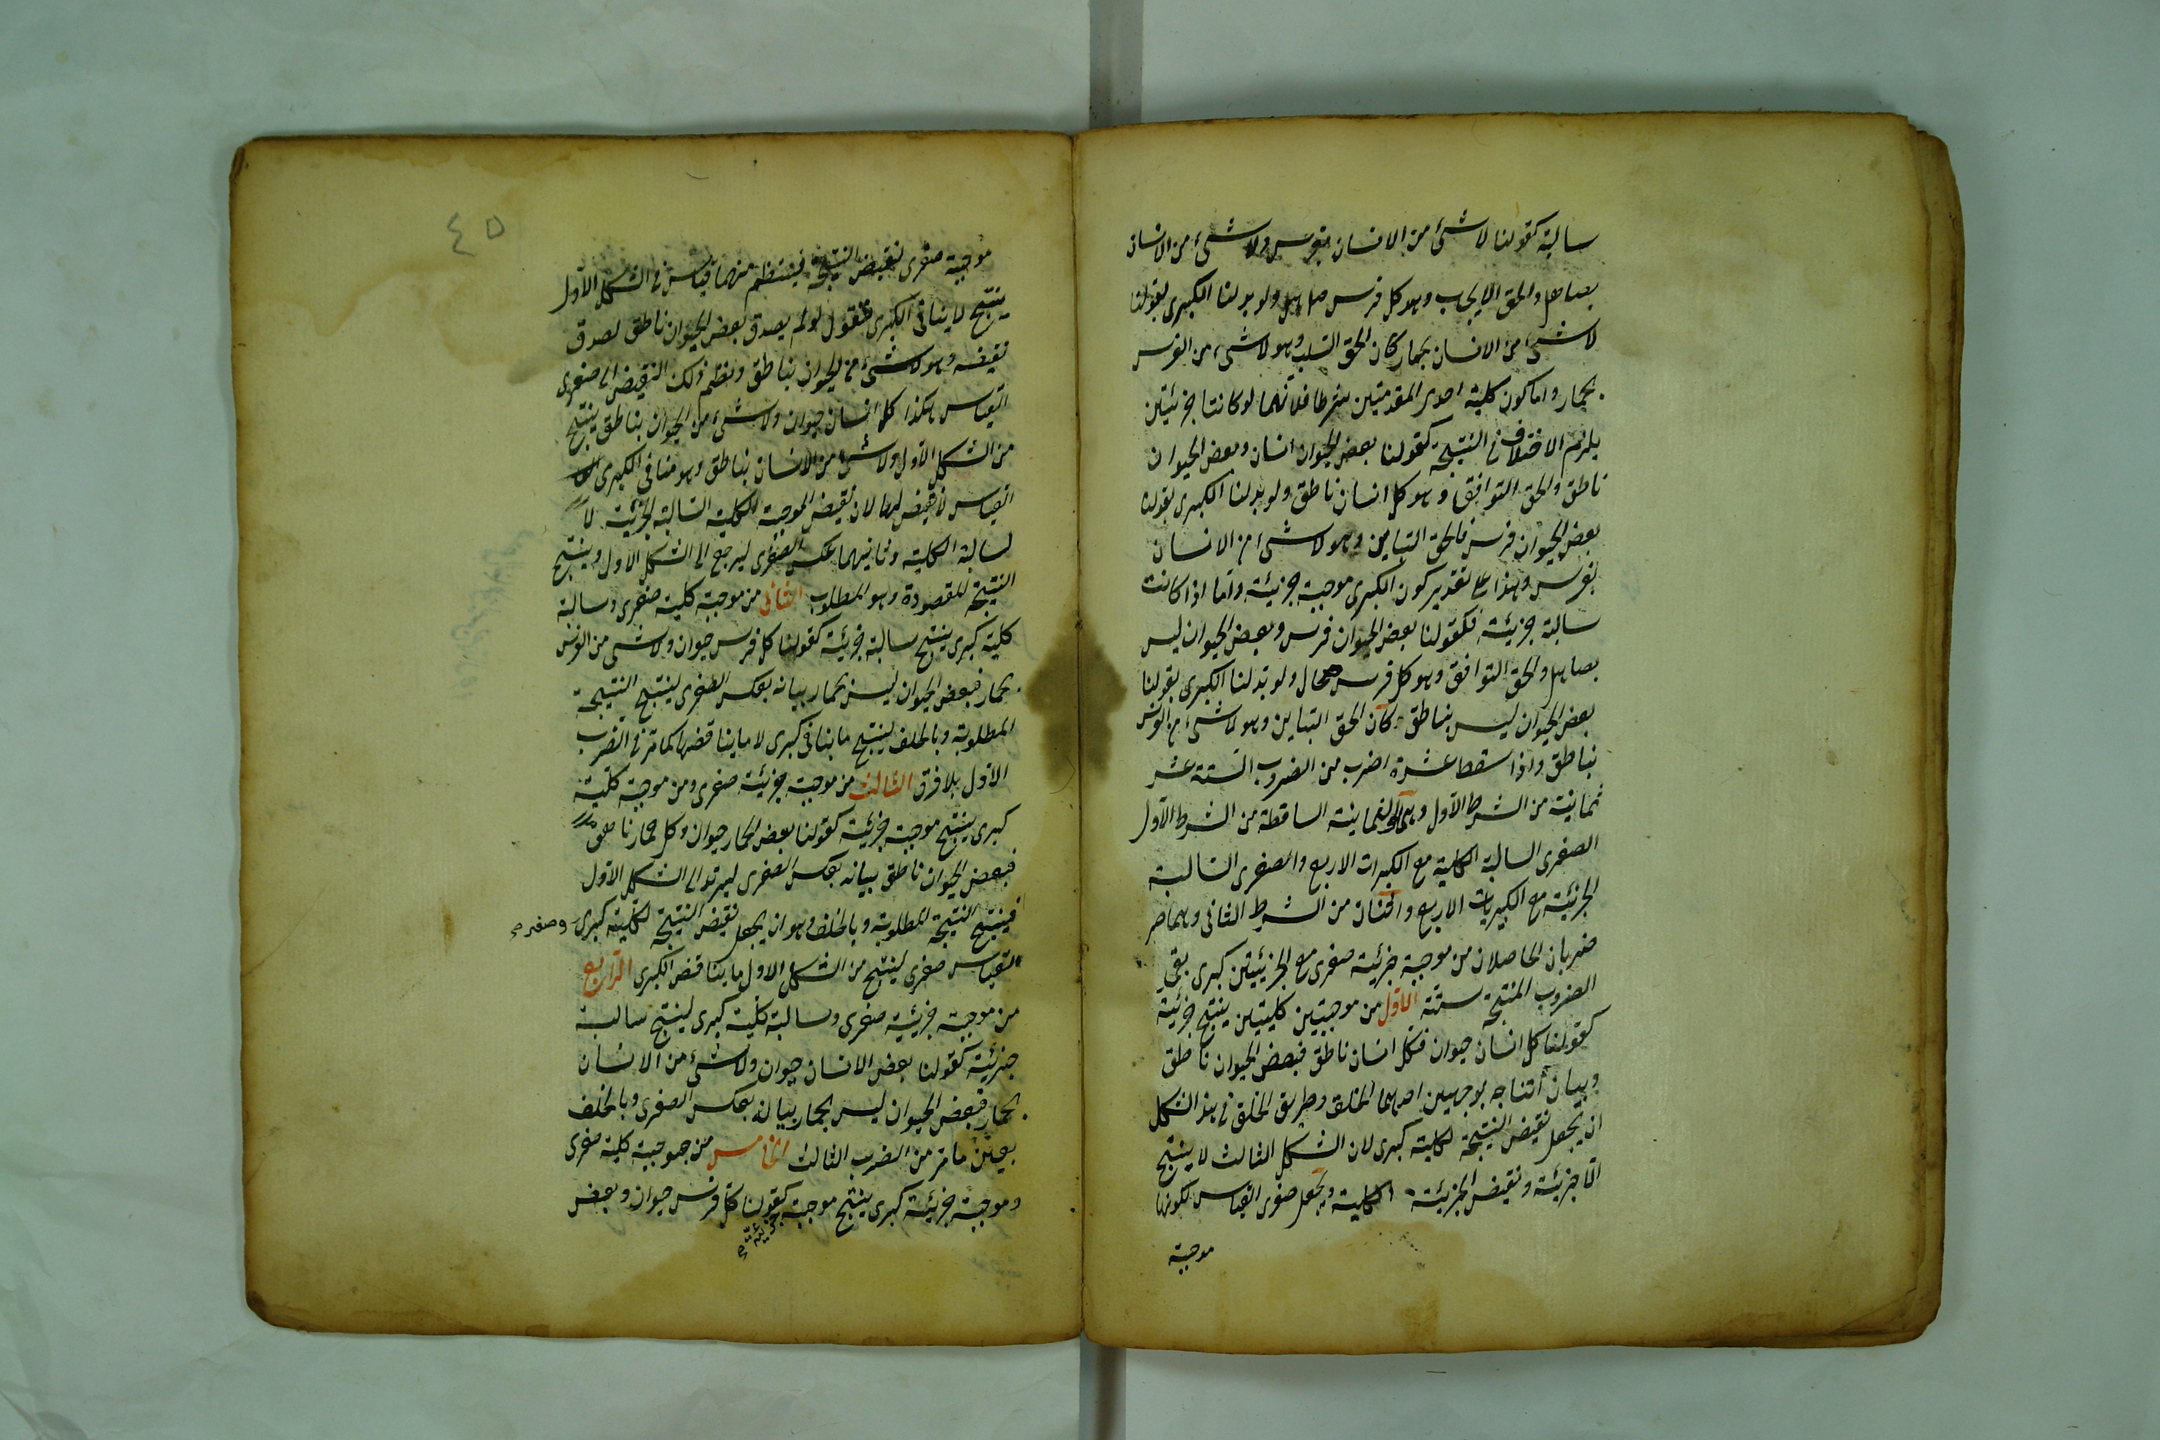 سالبة كقولنا لا شئ من الانسان بفرس ولا شئ من الانسان
بصاهل والحق الايجاب وهو كل فرس صاهل ولو بدلنا الكبرى بقولنا
لا شئ من الانسان بحمار كان الحق السلب وهو لا شئ من الفرس
بحمار واما كون كلية احدى المقدمتين شرطا فلانهما لو كانتا جزئيتين
يلزم الاختلاف في النتيجة كقولنا بعض الحيوان انسان وبعض الحيوان
ناطق والحق التوافق وهو كل انسان ناطق ولو بدلنا الكبرى بقولنا
بعض الحيوان فرس فالحق التباين وهو لا شئ من الانسان
بفرس وهذا على تقدير كون الكبرى موجبة جزئية واما اذا كانت
سالبة جزئية فكقولنا بعض الحيوان فرس وبعض الحيوان ليس
بصاهل والحق التوافق وهو كل فرس ولو بدلنا الكبرى بقولنا
بعض الحيوان ليس بناطق كان الحق التباين وهو لا شئ من الفرس
بناطق واذا سقط عشرة اضرب من الضروب الستة عشر
ثمانية من الشرط الاول والثمانية الساقطة من الشرط الاول
الصغرى السالبة الكلية مع الكبرات الاربع والصغرى السالبة
الجزئية مع الكبريات الاربع واثنان من الشرط الثانى وهما
ضربان الحاصلان من موجبة جزئية صغرى مع الجزئيتين كبرى بقى
الضروب المنتجة ستة الاول من موجبتين كليتين ينتج جزئية
كقولنا كل انسان حيوان فكل انسان ناطق فبعض الحيوان ناطق
وبيان انتاجه بوجهين احدهما الخلف وطريق الخلف في هذا الشكل
ان يجعل نقيض النتيجة لكلية كبرى لان الشكل الثالث لا ينتج
الا جزئية ونقيض الجزئية الكلية ويجعل صغرى القياس لكونها
موجبة
٤٥
موجبة صغرى لنقيض النتيجة فينتظم منهما قياس في الشكل الاول
ينتج لا ينافى الكبرى فنقول لو لم يصدق بعض الحيوان ناطق لصدق
نقيضه وهو لا شئ من الحيوان بناطق وينظم ذلك النقيض الى صغرى
القياس هكذا كل انسان حيوان ولا شئ من الحيوان بناطق ينتج
من الشكل الاول ولا شئ من الانسان بناطق وهو منافى الكبرى
القياس لا نقيض لها لان نقيض الموجبة الكلية السالبة الجزئية لا
لسالبة الكلية وثانيهما عكس الصغرى ليرجع الى الشكل الاول وينتج
النتيجة المقصودة وهو المطلوب الثانى من موجبة كلية صغرى وسالبة
كلية كبرى ينتج سالبة جزئية كقولنا كل فرس حيوان ولا شئ من الفرس
بحمار فبعض الحيوان ليس بحمار بيانه بعكس الصغرى لينتج النتيجة
المطلوبة وبالخلف لينتج ما ينافى كبرى لا ما يناقضها كما مر في الضرب
الاول بلا فرق الثالث من موجبة جزئية صغرى ومن موجبة كلية
كبرى ينتج موجبة جزئية كقولنا بعض الحمار حيوان وكل حمار ناهق
فبعض الحيوان ناطق بيانه بعكس الصغرى ليرتد الى الشكل الاول
فينتج النتيجة المطلوبة وبالخلف وهو ان يجعل نقيض النتيجة لكلية كبرى وصغرى
القياس صغرى لينتج من الشكل الاول ما يناقض الكبرى الرابع
من موجبة جزئية صغرى وسالبة كلية كبرى لينتج سالبة
جزئية كقولنا بعض الانسان حيوان ولا شئ من الانسان
بحمار فبعض الحيوان ليس بحمار بيانه بعكس الصغرى وبالخلف
بعين ما مر من الضرب الثالث الخامس من موجبة كلية صغرى
وموجبة جزئية كبرى ينتج موجبة كقولنا كل فرس حيوان وبعض
جزئية